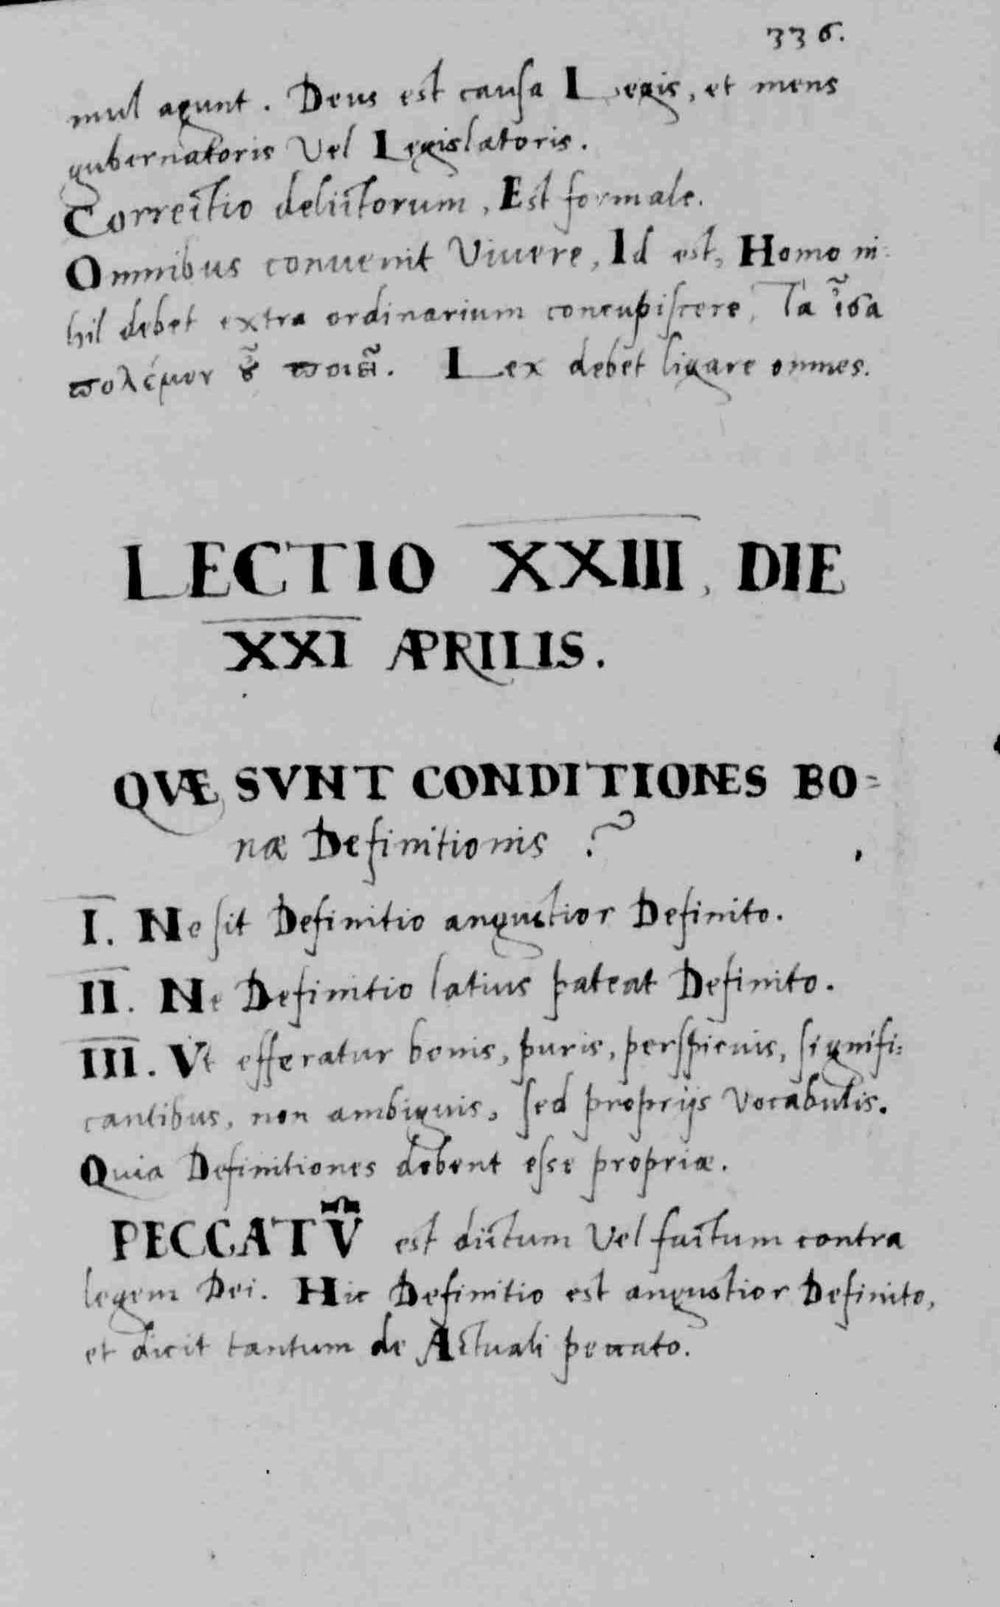 336.
mul agunt. Deus est causa Legis, et mens
gubernatoris Vel Legislatoris.
Correctio delictorum, Est formale.
Omnibus convenit Vivere, Id est, Homo ni-
hil debet extra ordinarium concupiscere, Τὰ ἶσα
πολέμον οὐ ποιεῖ. Lex debet ligare omnes.
LECTIO XXIII, DIE
XXI APRILIS.
QVÆ SVNT CONDITIONES BO=
næ Definitionis ?
I. Ne sit Definitio angustior Definito.
II. Ne Definitio latius pateat Definito.
III. Vt efferatur bonis, puris, perspicuis, signifi=
cantibus, non ambiguis, sed proprijs Vocabulis.
Quia Definitiones debent esse propriæ.
PECCATV̄ est dictum Vel factum contra
legem Dei. Hic Definitio est angustior Definito,
et dicit tantum de Actuali peccato.